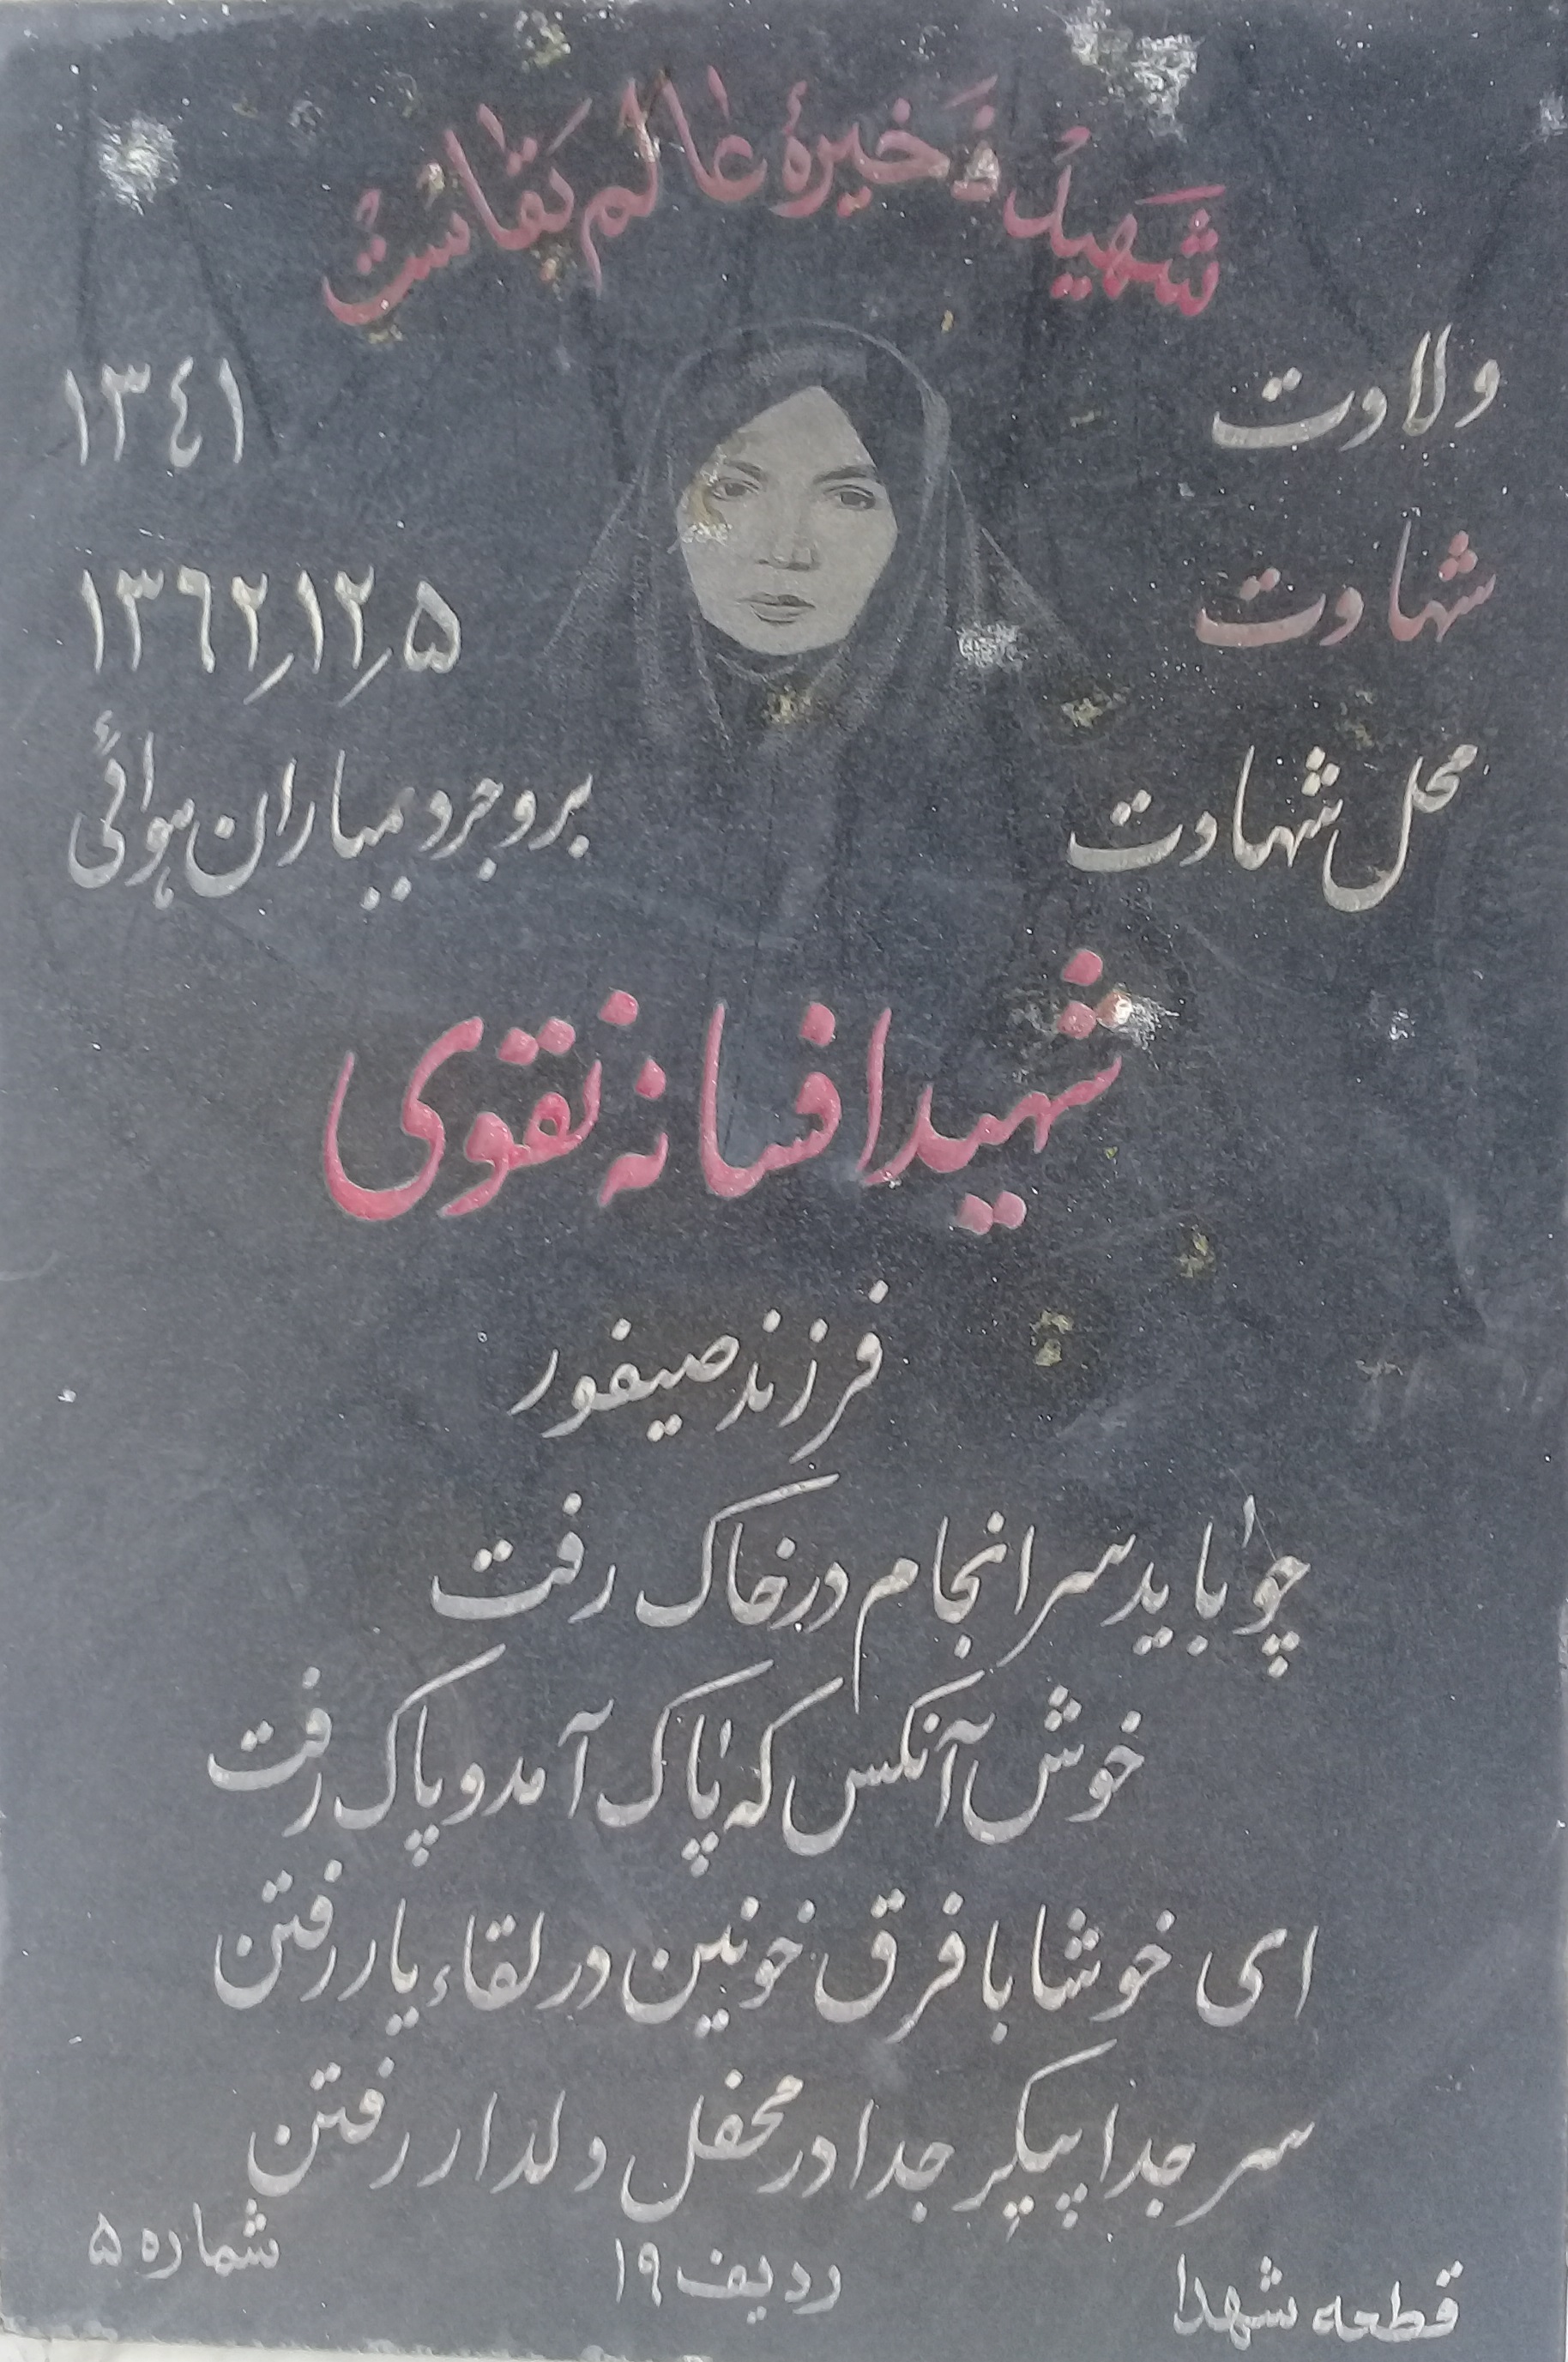 شهید ذخیرۀ عالم بقاست
ولادت ۱۳۴۱
شهادت ۱۳۶۲٫۱۲٫۵
محل شهادت بروجرد بمباران هوائی
شهید افسانه نقوی
فرزند صیفور
چو باید سرانجام در خاک رفت
خوش آنکس که پاک آمد و پاک رفت
ای خوشا با فرق خونین در لقاء یار رفتن
سر جدا پیکر جدا در محفل دلدار رفتن
قطعه شهدا ردیف ۱۹ شماره ۵